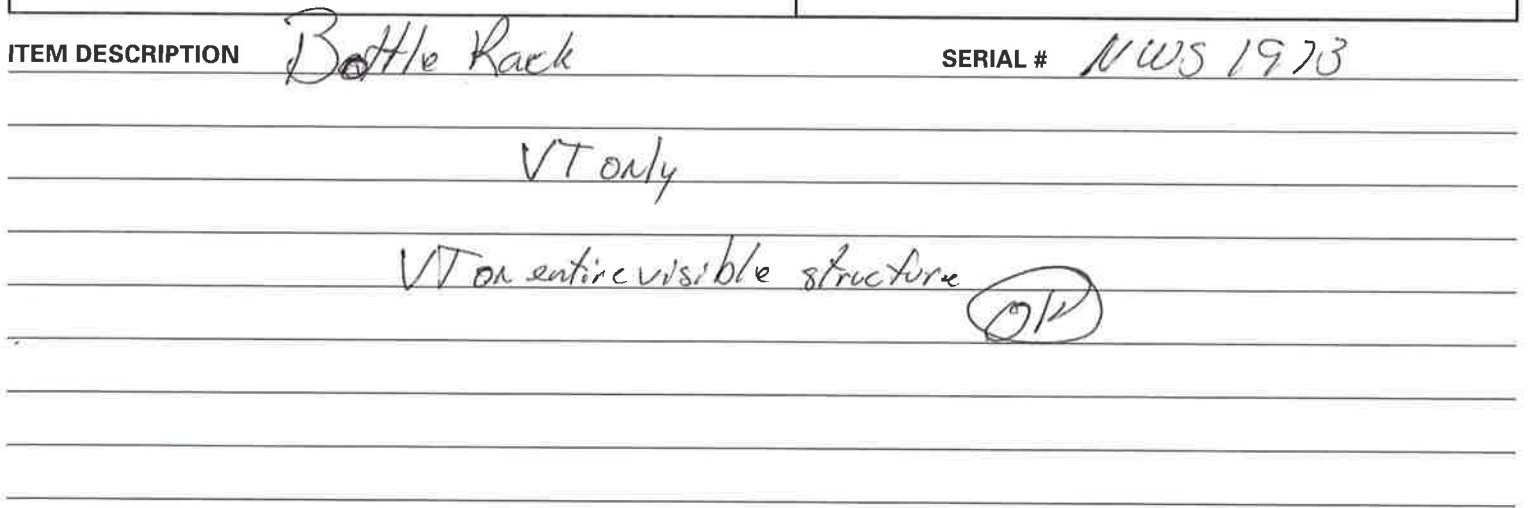 ITEM DESCRIPTION Bottle Rack SERIAL # NWS 1973
VT only
VT on entire visible structure
OK